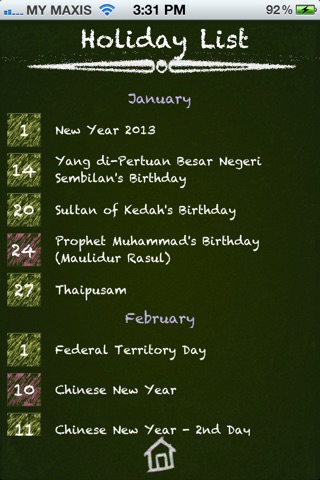 MY MAXIS 3:31 PM 92%
Holiday List
January
1 New Year 2013
14 Yang di-Pertuan Besar Negeri
Sembilan's Birthday
20 Sultan of Kedah's Birthday
24 Prophet Muhammad's Birthday
(Maulidur Rasul)
27 Thaipusam
February
1 Federal Territory Day
10 Chinese New Year
11 Chinese New Year - 2nd Day